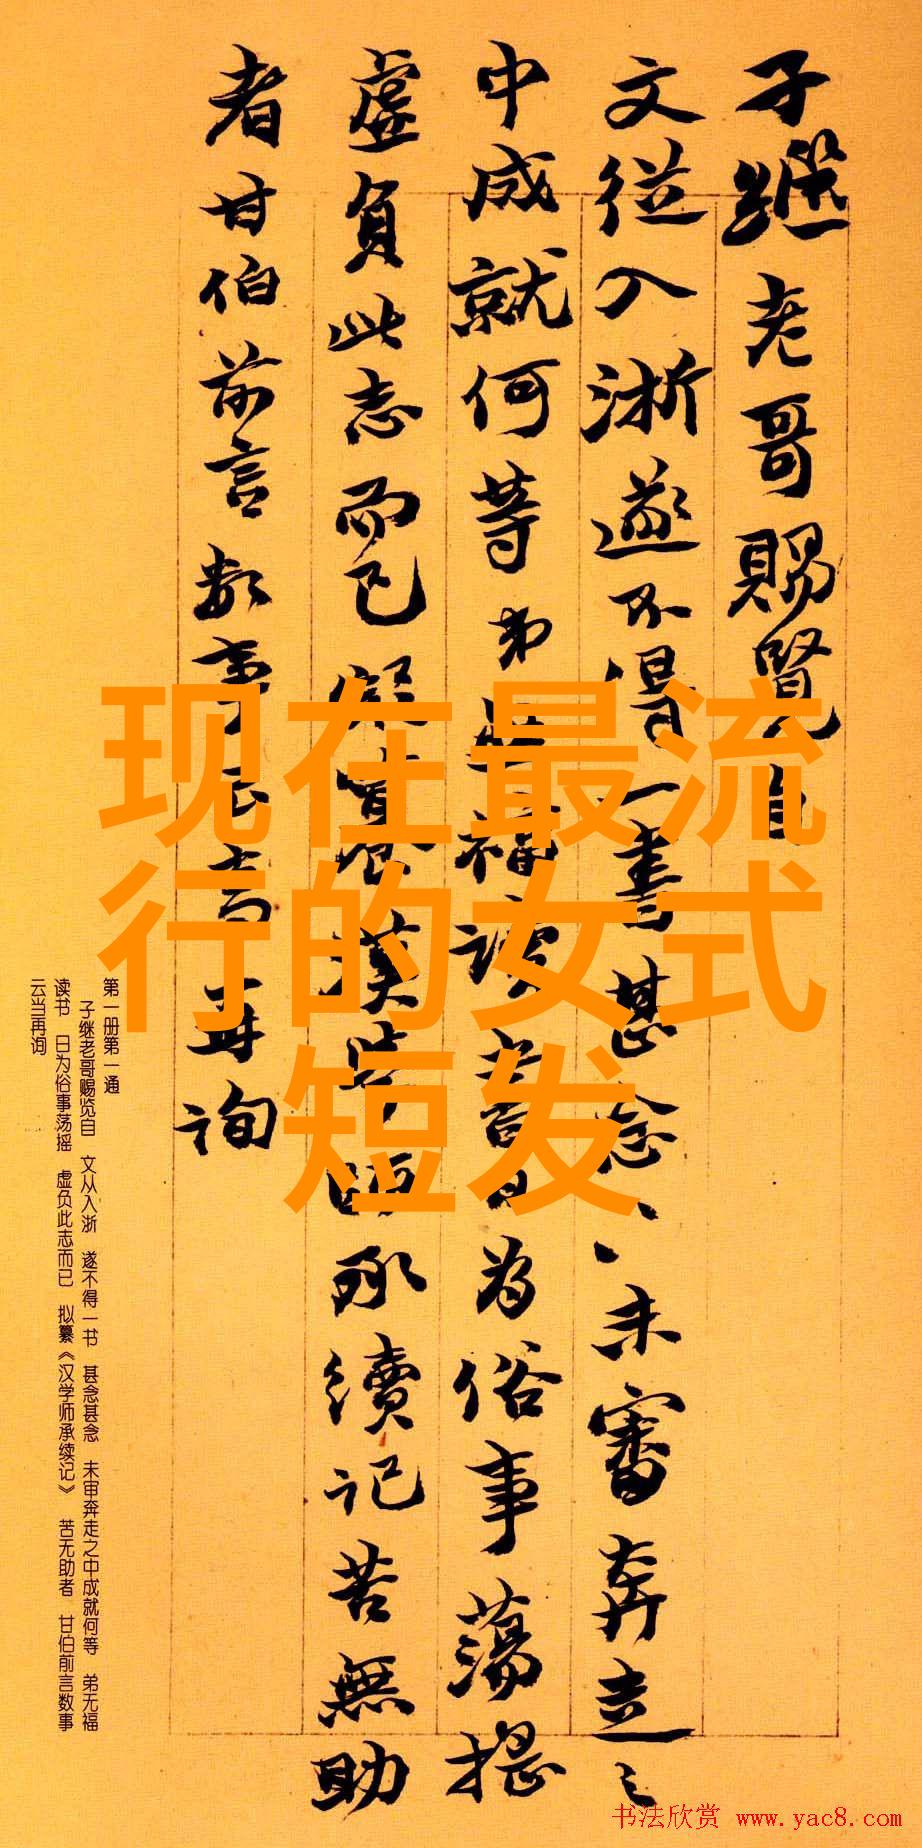 子繼老哥賜覽自
文從入浙遂不得一書甚念〻未審奔走之
中成就何等弟無福讀書日為俗事蕩搖
虛負此志而已擬纂漢學師承續記苦無助
者甘伯前言數事云當再詢
现在最流
行的女式
短发
第一册第一通
子继老哥赐览自 文从入浙 遂不得一书 甚念甚念 未审奔走之中成就何等 弟无福
读书 日为俗事荡摇 虚负此志而已 拟纂《汉学师承续记》 苦无助者 甘伯前言数事
云当再询
书法欣赏 www.yac8.com